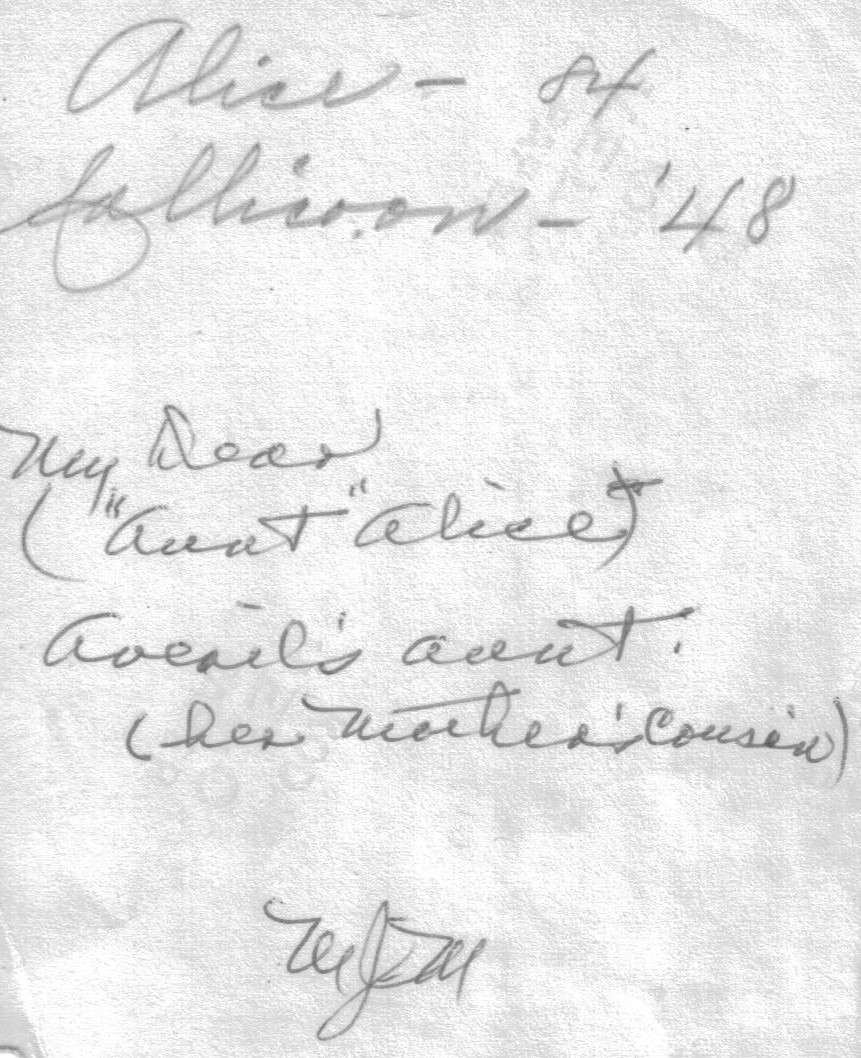 Alice - 84
Jallison - '48
My Dear
("Aunt" Alice)
Averil's aunt.
(her mother's cousin)
MJM